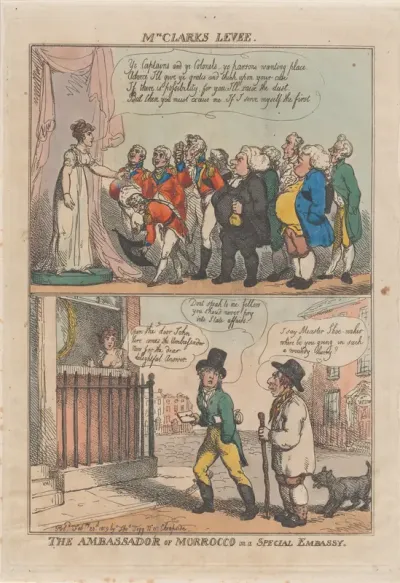 Mrs CLARKS LEVEE.
Ye Captains and ye Colonels, ye parsons wanting place
Advice I'll give ye gratis and think upon your case
If there is possibility for you I'll raise the dust
But then you must excuse me If I serve myself the first
Open the door John
here comes the Ambassador
now for the dear
delightful Answer.
Dont speak to me fellow
you should never pry
into State affairs
I say Measter Shoe maker
where be you going in such
a woundy Hurry?
THE AMBASSADOR OF MORROCCO ON A SPECIAL EMBASSY.